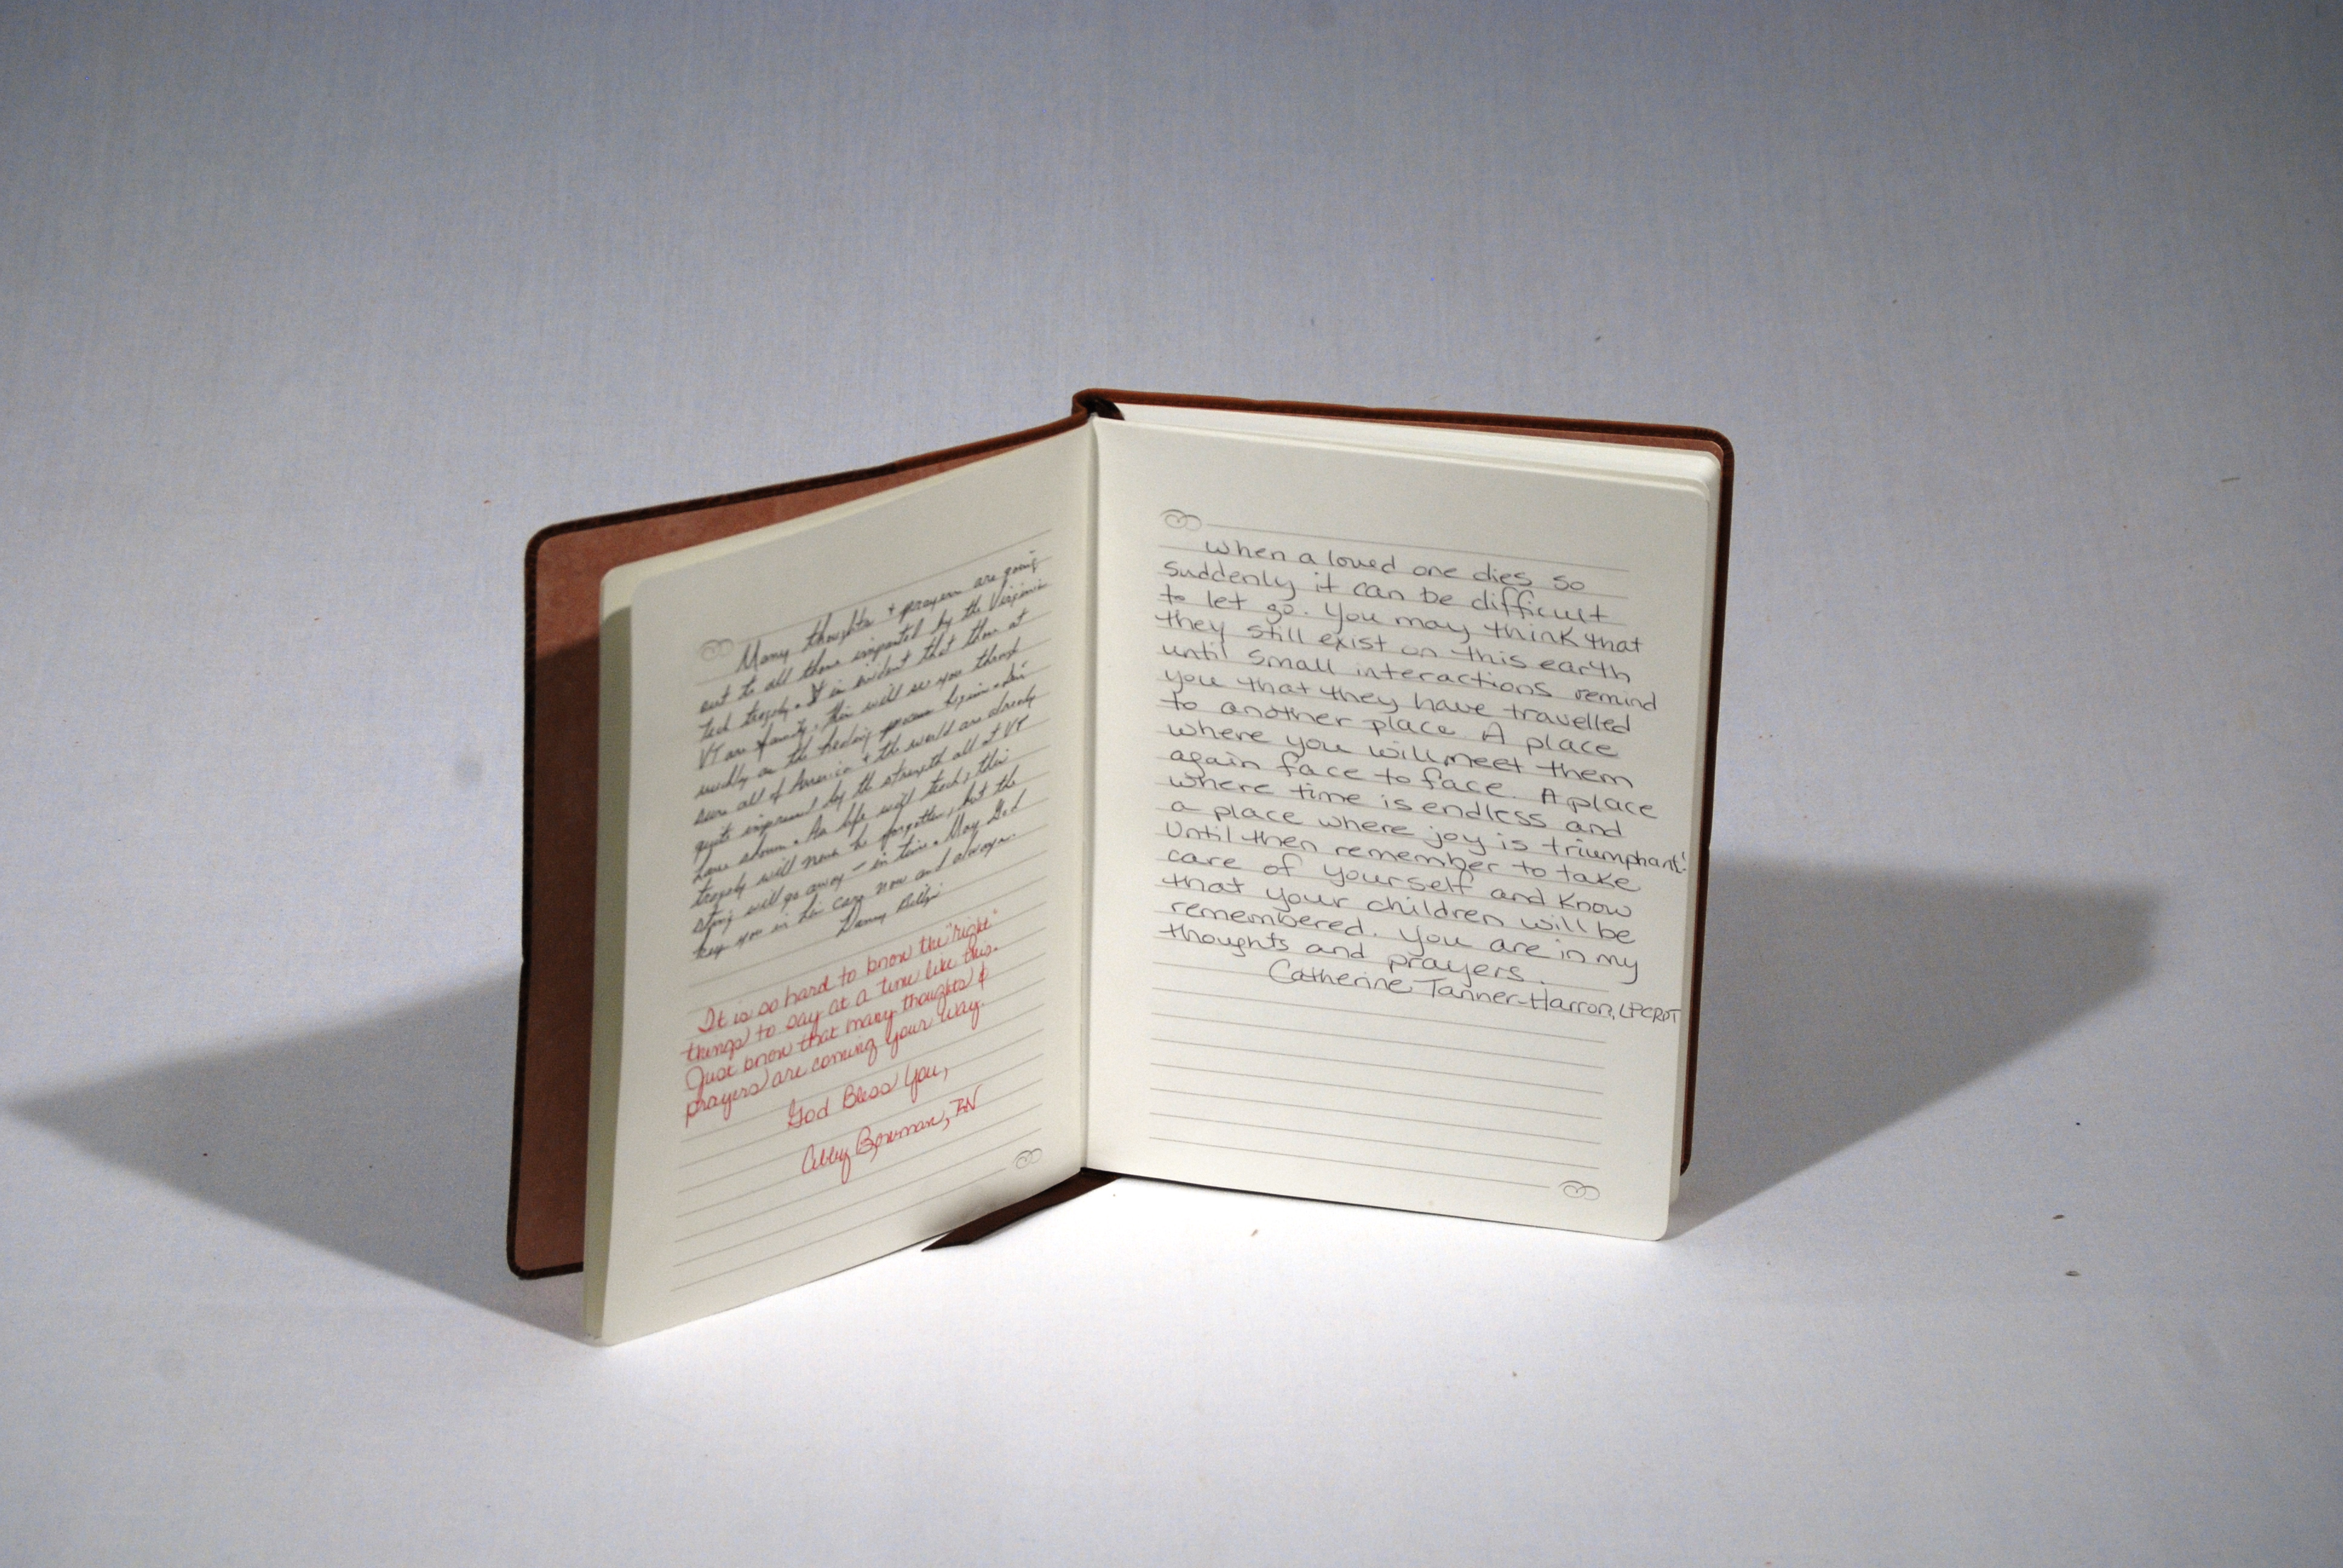 Many thoughts + prayers are going
out to all those impacted by the Virginia
Tech tragedy. It is evident that those at
VT are family; this will see you through
on the healing process
sure all of America + the world are already
quite impressed by the strength all at VT
have shown. As life will teach, this
tragedy will never be forgotten, but the
sting will go away - in time. May God
keep you in his care now and always.
It is so hard to know the "right"
things to say at a time like this.
Just know that many thoughts &
prayers are coming your way.
God Bless You,
Abby Bowman, RN
When a loved one dies so
suddenly it can be difficult
to let go. You may think that
they still exist on this earth
until small interactions remind
you that they have travelled
to another place. A place
where you will meet them
again face to face. A place
where time is endless and
a place where joy is triumphant!
Until then remember to take
care of yourself and know
that your children will be
remembered. You are in my
thoughts and prayers.
Catherine Tanner-Harron, LPCRDT